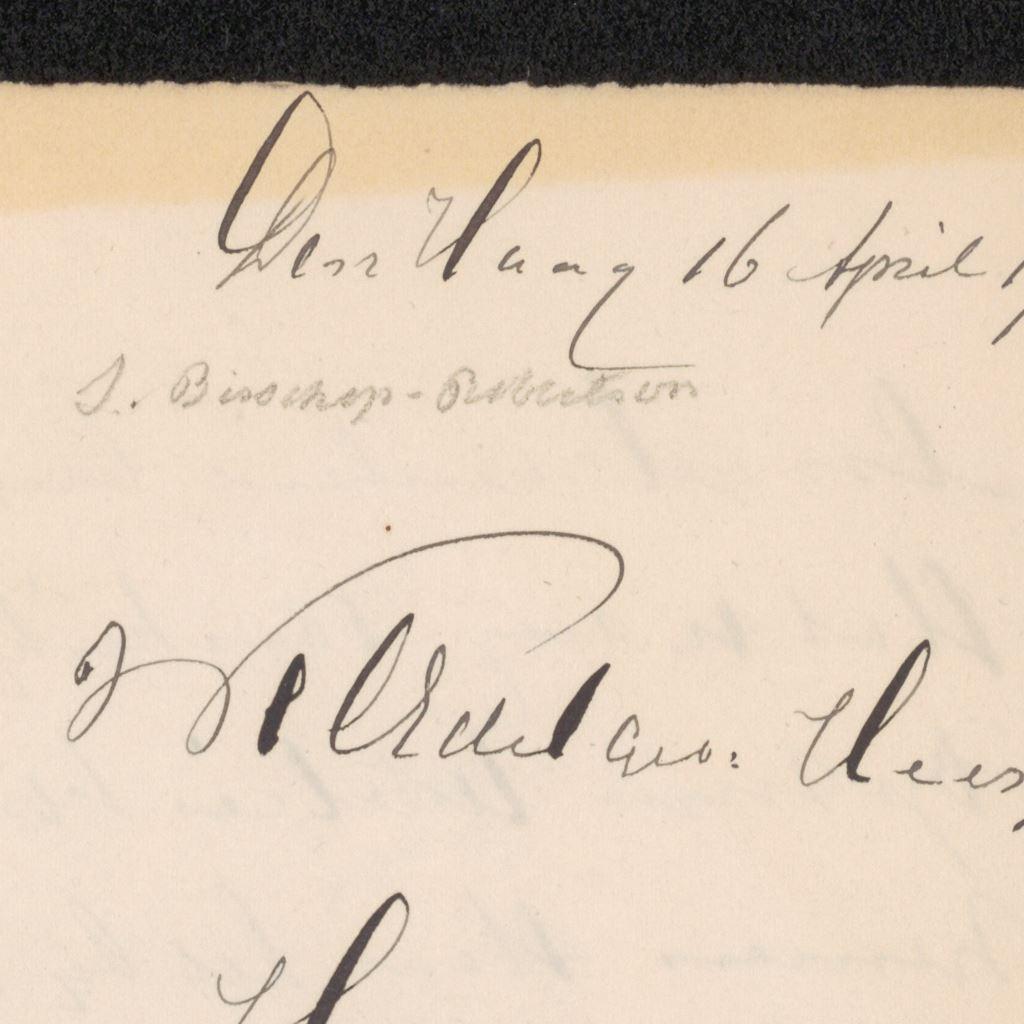 Den Haag 16 April 1
S. Bisschop-Robertson
WelEdelgeb: Heer
H